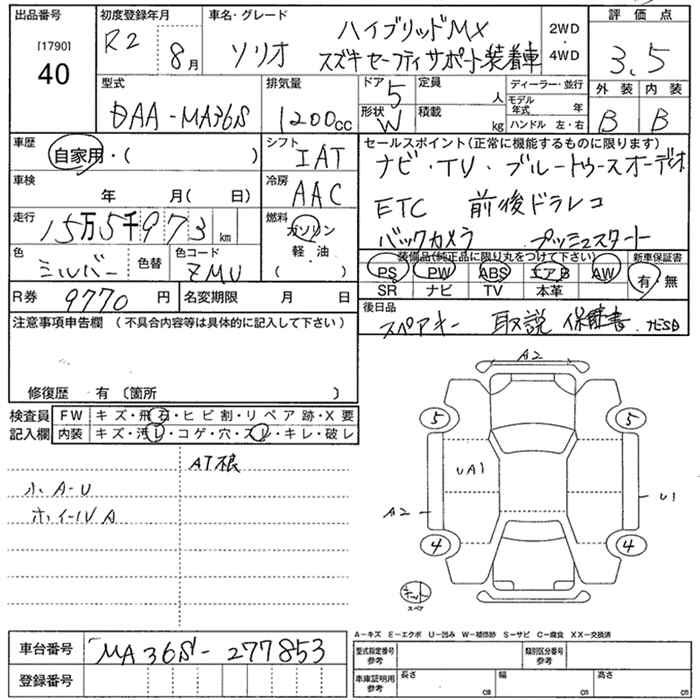 出品番号
[1790]
40
初度登録年月
R2 8月
車名・グレード
ソリオ ハイブリッドMX
スズキセーフティサポート装着車
2WD
・
4WD
評価点
3.5
外装 内装
B B
型式
DAA-MA36S
排気量
1200cc
ドア
5
形状
W
定員
人
積載
kg
ディーラー・並行
モデル年式 年
ハンドル 左・右
車歴
自家用・( )
シフト
IAT
車検
年 月( 日)
冷房
AAC
走行
15万5千973km
燃料
ガソリン
軽油
( )
色
シルバー
色替
色コード
ZMU
R券 9770円
名変期限 月 日
セールスポイント(正常に機能するものに限ります)
ナビ・TV・ブルートゥースオーデオ
ETC 前後ドラレコ
バックカメラ プッシュスタート
装備品(純正品に限り丸をつけて下さい)
新車保証書
PS PW ABS エアB AW
SR ナビ TV 本革
有・無
後日品
スペアキー 取説 保証書
注意事項申告欄(不具合内容等は具体的に記入して下さい)
修復歴 有〔箇所 〕
検査員
記入欄
FW キズ・飛石・ヒビ割・リペア跡・X要
内装 キズ・汚レ・コゲ・穴・スレ・キレ・破レ
AT根
小A-U
ホイールA
A2
5 5
UA1
A2
U1
4 4
キット
スペア
A-キズ E-エクボ U-凹み W-補修跡 S-サビ C-腐食 XX-交換済
車台番号 MA36S-277853
登録番号
型式指定番号
参考
類別区分番号
参考
車庫証明用
参考
長さ cm
幅 cm
高さ cm